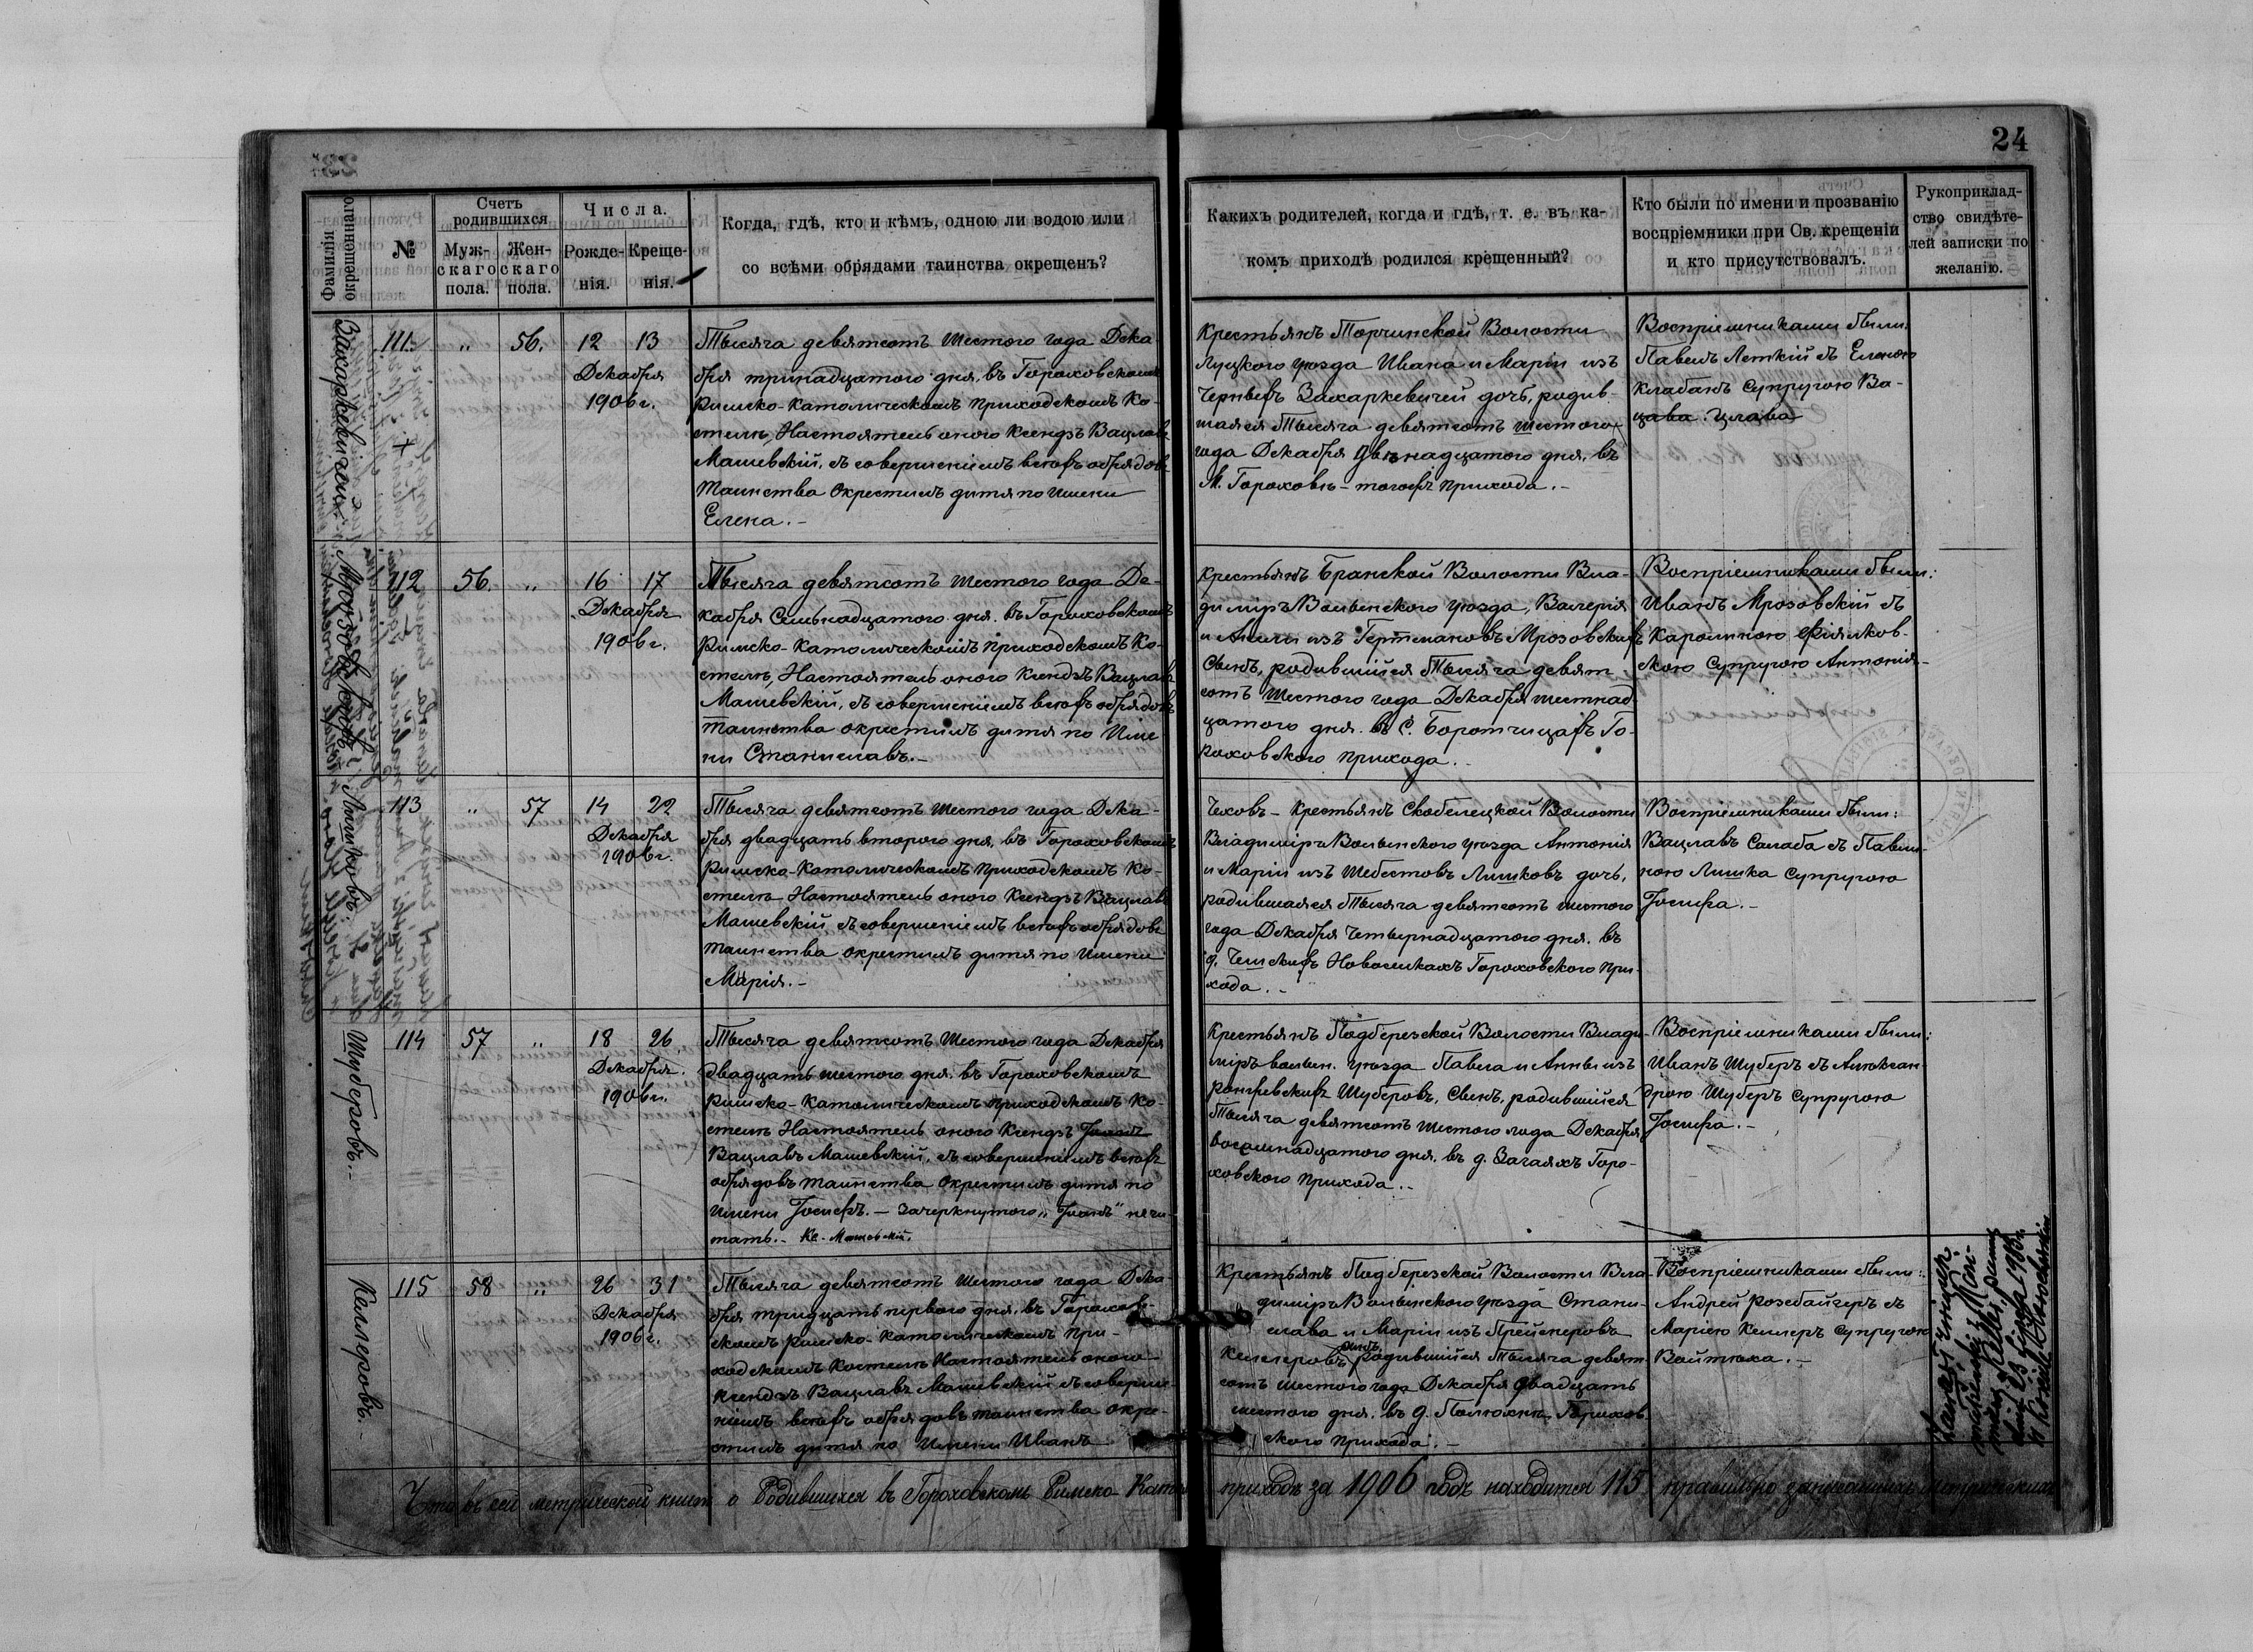 24
Фамилія окрещеннаго
№
Счетъ родившихся
Муж-
скаго
пола.
Жен-
скаго
пола.
Числа.
Рожде-
нія.
Креще-
нія.
Когда, гдѣ, кто и кѣмъ, одною ли водою или
со всѣми обрядами таинства окрещенъ?
Какихъ родителей, когда и гдѣ, т. е. въ ка-
комъ приходѣ родился крещенный?
Кто были по имени и прозванію
воспріемники при Св. крещеніи
и кто присутствовалъ.
Рукоприклад-
ство свидѣте-
лей записки по
желанію.
111. " 56. 12 13
Декабря
1906 г.
Тысяча девятсотъ шестого года Дека
бря тринадцатого дня, въ Гороховскомъ
Римско-Католическомъ Приходскомъ Ко-
стелѣ, Настоятель оного Ксендзъ Вацлавъ
Машевскій, съ совершеніемъ всѣхъ обрядовъ
Таинства окрестилъ дитя по имени
Елена.-
Крестьянъ Торчинской Волости
Луцкого уѣзда Ивана и Маріи изъ
Захаркевичей дочь, родив-
шаяся Тысяча девятсотъ шестого
года Декабря двѣнадцатого дня, въ
М. Гороховѣ - тогожъ прихода.-
Воспріемниками были:
Павелъ съ Еленою
супругою Ва-
цлава
Мрозовскихъ
112 56. " 16 17
Декабря
1906 г.
Тысяча девятсотъ шестого года Де-
кабря Семьнадцатого дня, въ Гороховскомъ
Римско-Католическомъ Приходскомъ Ко-
стелѣ, Настоятель оного Ксендзъ Вацлавъ
Машевскій, съ совершеніемъ всѣхъ обрядовъ
таинства окрестилъ дитя по Име
ни Станиславъ.-
Крестьянъ Бранской Волости Вла-
димиръ Волынского уѣзда, Валерія
и изъ Гертмановъ Мрозовскихъ
Сынъ, родившійся Тысяча девят
сотъ Шестого года Декабря шестнад
цатого дня въ С. Боротчицахъ Го-
роховского прихода.
Воспріемниками были:
Иванъ Мрозовскій съ
Каролиною Фіялков-
скою супругою Антонія-
Лишковъ.
113 " 57 14 22
Декабря
1906 г.
Тысяча девятсотъ шестого года Дека-
бря двадцать второго дня, въ Гороховскомъ
Римско-Католическомъ Приходскомъ Ко-
стелѣ Настоятель оного Ксендзъ Вацлавъ
Машевскій, съ совершеніемъ всѣхъ обрядовъ
таинства окрестилъ дитя по имени
Марія.-
Чеховъ - Крестьянъ Скобелецкой Волости
Владимиръ Волынского уѣзда Антонія
и Маріи изъ Шебестовъ Лишковъ дочь,
родившаяся Тысяча девятсотъ шестого
года Декабря Четырнадцатого дня въ
д. Чешскихъ Новоселкахъ Гороховского при-
хода.-
Воспріемниками были:
Вацлавъ Салаба съ Павли-
ною Лишка супругою
Іосифа.-
Шуберовъ.-
114 57 " 18 26
Декабря
1906 г.
Тысяча девятсотъ Шестого года Декабря
двадцать шестого дня въ Гороховскомъ
Римско-Католическомъ приходскомъ Ко-
стелѣ Настоятель оного Ксендзъ
Вацлавъ Машевскій, съ совершеніемъ всѣхъ
обрядовъ таинства окрестилъ дитя по
имени Іосифъ.- Зачеркнутого не чи-
тать.- Кс. Машевскій.
Крестьянъ Подберезской Волости Влади-
міръ Волын. уѣзда Павла и Анны изъ
Шуберовъ, Сынъ, родившійся
Тысяча девятсотъ шестого года Декабря
восемнадцатого дня, въ д. Загаяхъ Горо-
ховского прихода.-
Воспріемниками были:
Иванъ Шуберъ съ Александ
рою Шуберъ супругою
Іосифа.-
Келлеровъ.-
115 58 " 26 31
Декабря
1906 г.
Тысяча девятсотъ шестого года Дека
бря тридцать первого дня, въ Горохов-
скомъ римско-католическомъ при-
ходскомъ Костелѣ Настоятель оного
Ксендзъ Вацлавъ Машевскій съ соверше-
ніемъ всѣхъ обрядовъ таинства окре-
стилъ дитя по имени Иванъ
Крестьянъ Подберезской Волости Вла-
димиръ Волынского уѣзда Стани-
слава и Маріи изъ Прейснеровъ
Келлеровъ сынъ, родившійся Тысяча девят
сотъ шестого года Декабря двадцать
шестого дня, въ д. Горохов
ского прихода.-
Воспріемниками были:
Андрей Розебайгеръ съ
Маріею Келлеръ супругою
Войтѣха.-
Что въ сей метрической книгѣ о Родившихся въ Гороховскомъ Римско-Катол
приходѣ за 1906 годъ находится 115 правильно записанныхъ метрическихъ